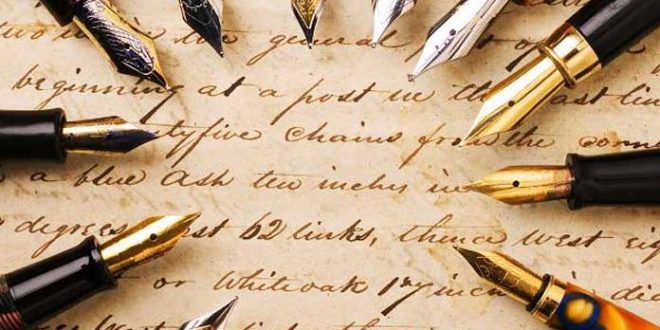 two in the general
beginning at a post in the East lin
tyfive Chains from the corne
a blue Ash ten inches in
degrees st 62 links, thence west eig
or Whiteoak 17 inc di
West